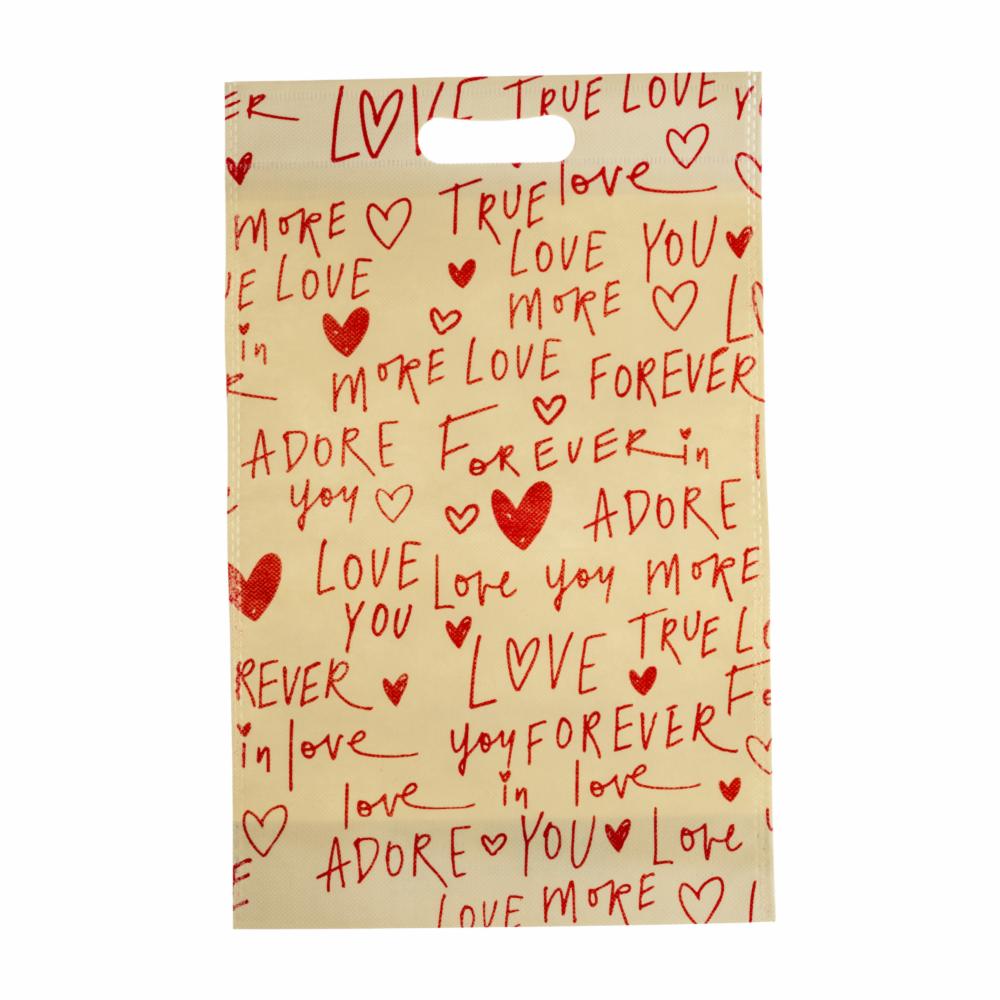 ER LOVE TRUE LOVE Y
MORE TRUE love
E LOVE LOVE YOU
in MORE
MORE LOVE FOREVER
R
ADORE FOREVER in
you ADORE
LOVE Love you MORE
YOU LOVE TRUE LO
REVER FO
in love you FOREVER
love in love
ADORE YOU Love
E LOVE MORE